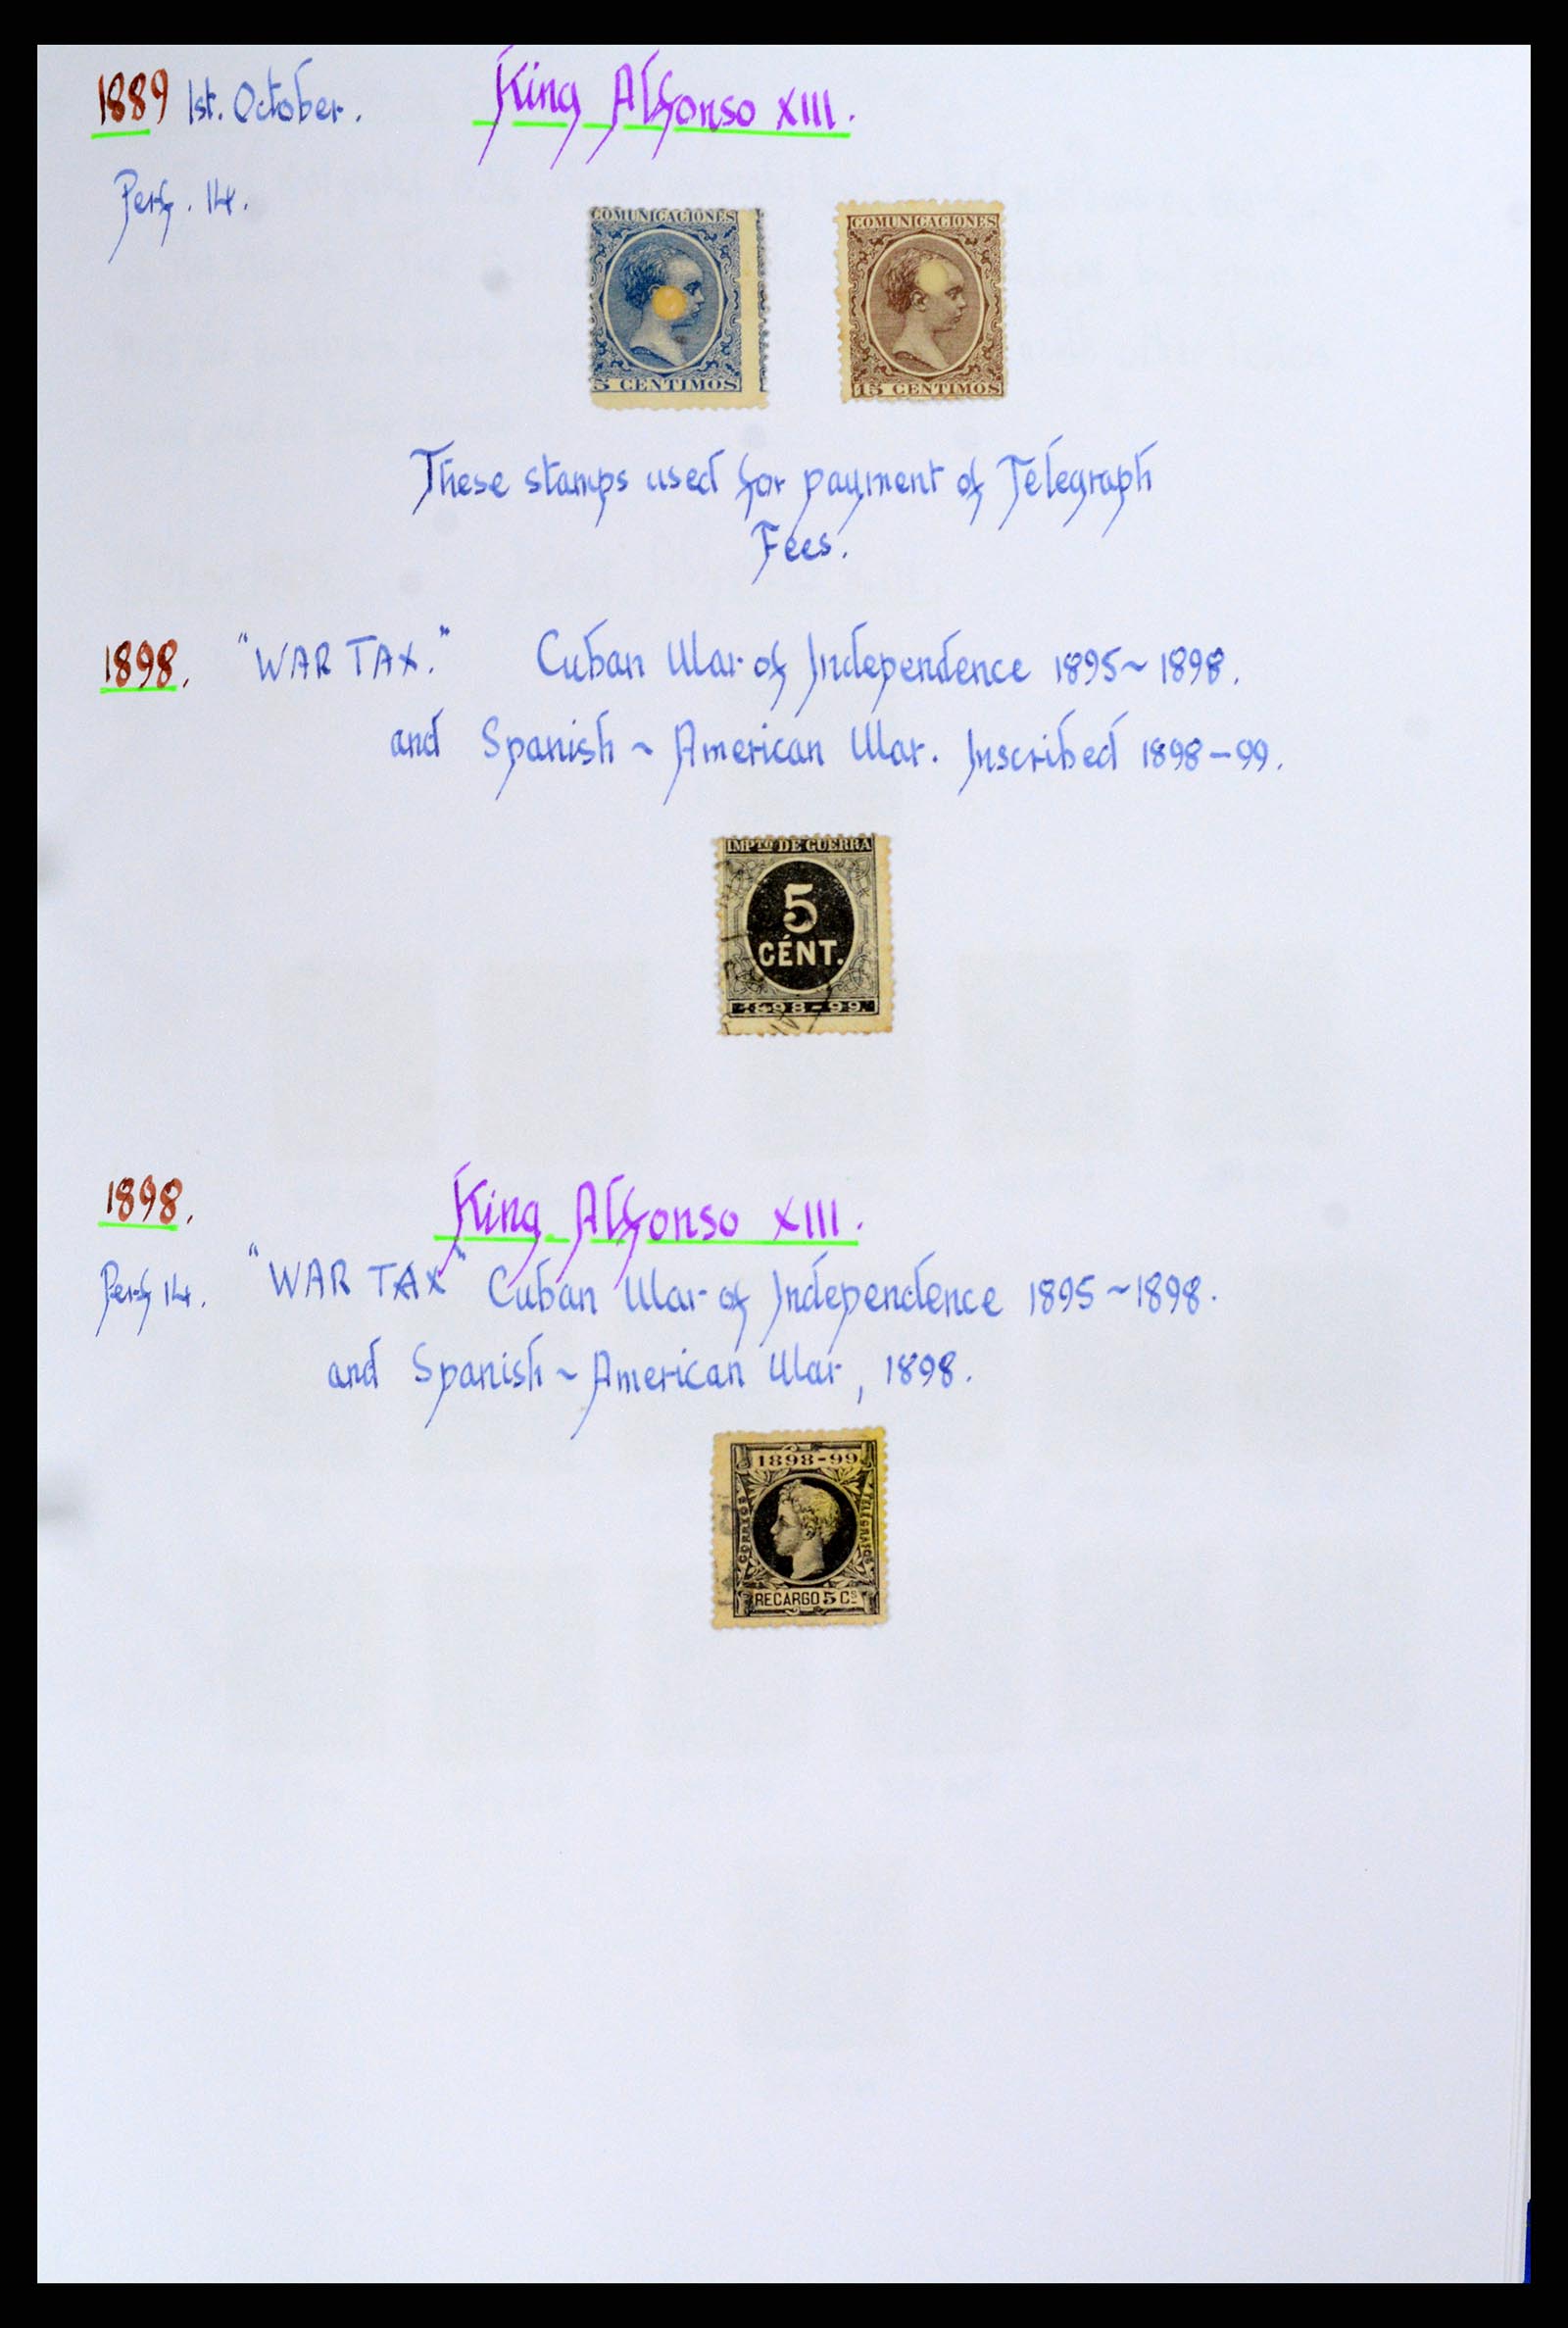 1889 1st. October. King Alfonso XIII.
Perf. 14.
COMUNICACIONES COMUNICACIONES
5 CENTIMOS 15 CENTIMOS
These stamps used for payment of Telegraph
Fees.
1898. "WAR TAX." Cuban War of Independence 1895~1898.
and Spanish ~ American War. Inscribed 1898-99.
IMPTO DE GUERRA
5
CÉNT.
1898-99.
1898. King Alfonso XIII.
Perf 14. "WAR TAX" Cuban War of Independence 1895~1898.
and Spanish ~ American War, 1898.
1898-99
CORREOS TELEGRAFOS
RECARGO 5 CS